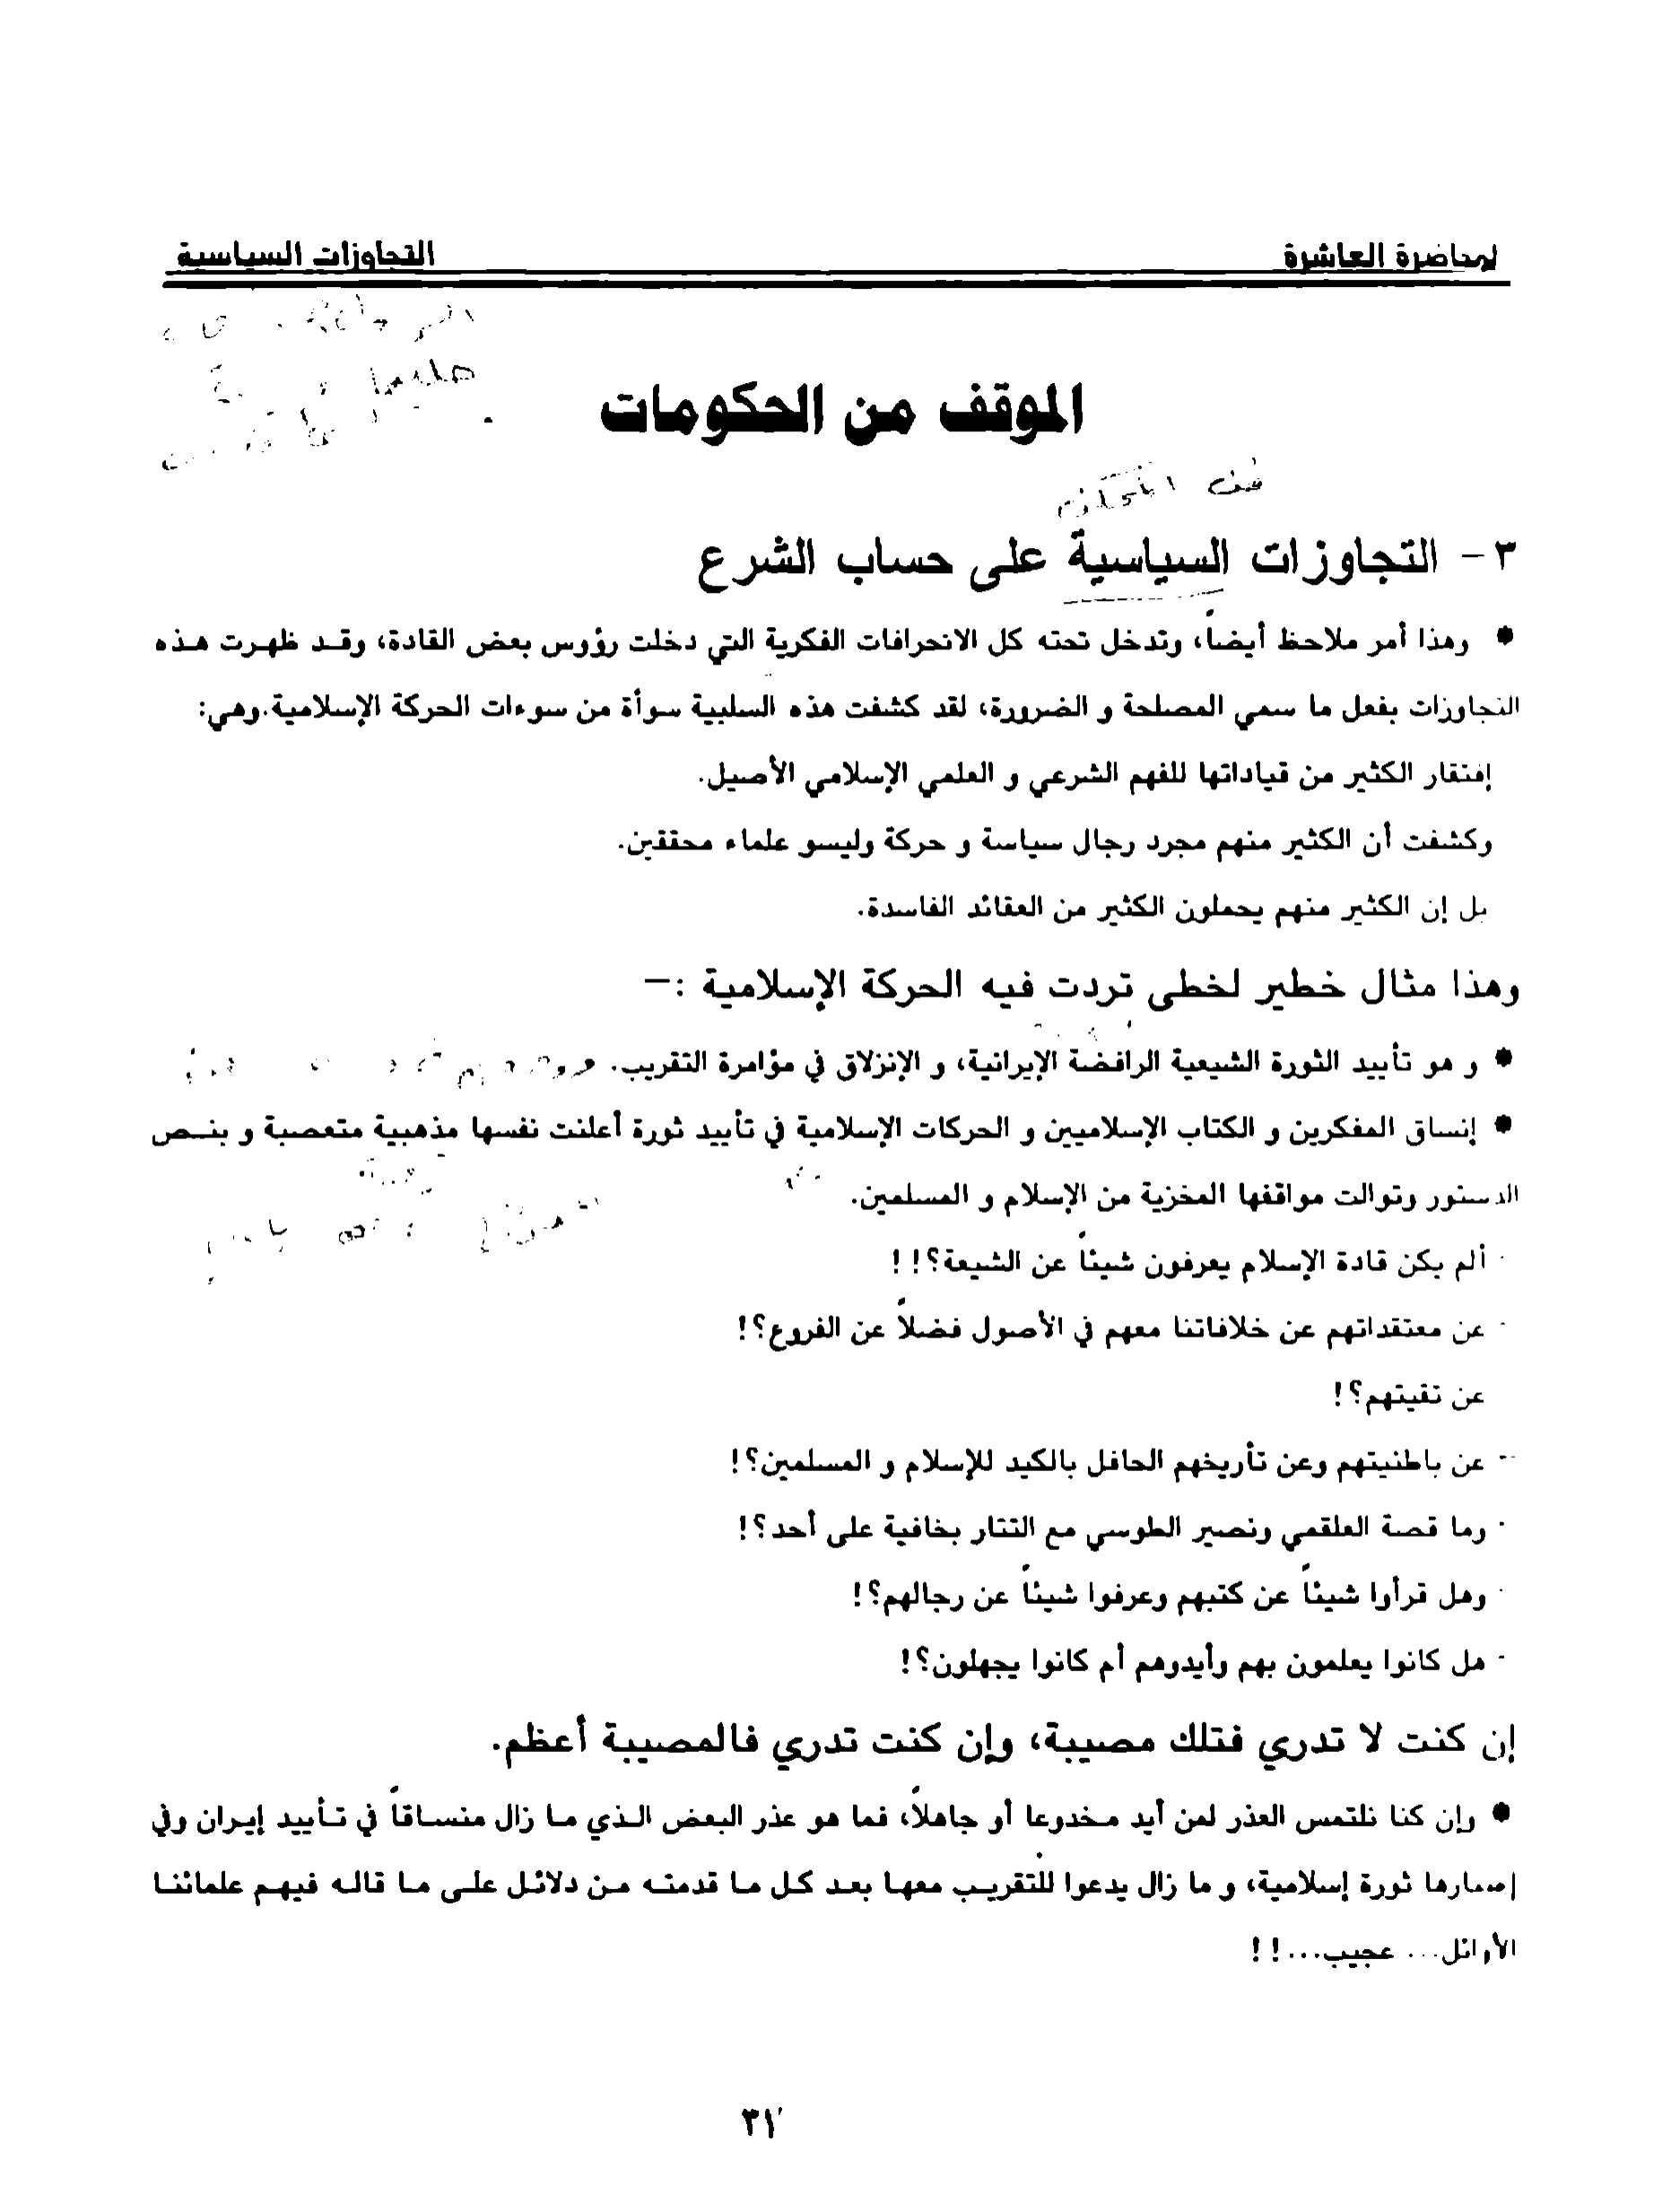 لمحاضرة العاشرة
التجاوزات السياسية
الموقف من الحكومات
٣- التجاوزات السياسية على حساب الشرع
• وهذا أمر ملاحظ أيضاً، وتدخل تحته كل الانحرافات الفكرية التي دخلت رؤوس بعض القادة، وقد ظهرت هذه
التجاوزات بفعل ما سمي المصلحة و الضرورة، لقد كشفت هذه السلبية سوأة من سوءات الحركة الإسلامية.وهي:
إفتقار الكثير من قياداتها للفهم الشرعي و العلمي الإسلامي الأصيل.
وكشفت أن الكثير منهم مجرد رجال سياسة و حركة وليسو علماء محققين.
بل إن الكثير منهم يحملون الكثير من العقائد الفاسدة.
وهذا مثال خطير لخطى تردت فيه الحركة الإسلامية :-
• و هو تأييد الثورة الشيعية الرافضة الإيرانية، و الإنزلاق في مؤامرة التقريب.
• إنساق المفكرين و الكتاب الإسلاميين و الحركات الإسلامية في تأييد ثورة أعلنت نفسها مذهبية متعصبة و بنص
الدستور وتوالت مواقفها المخزية من الإسلام و المسلمين.
- ألم يكن قادة الإسلام يعرفون شيئاً عن الشيعة؟!!
- عن معتقداتهم عن خلافاتنا معهم في الأصول فضلاً عن الفروع؟!
عن تقيتهم؟!
- عن باطنيتهم وعن تأريخهم الحافل بالكيد للإسلام و المسلمين؟!
- وما قصة العلقمي ونصير الطوسي مع التتار بخافية على أحد؟!
- وهل قرأوا شيئاً عن كتبهم وعرفوا شيئاً عن رجالهم؟!
- هل كانوا يعلمون بهم وأيدوهم أم كانوا يجهلون؟!
إن كنت لا تدري فتلك مصيبة، وإن كنت تدري فالمصيبة أعظم.
• وإن كنا نلتمس العذر لمن أيد مخدوعا أو جاهلاً، فما هو عذر البعض الذي ما زال منساقاً في تأييد إيران وفي
إعتبارها ثورة إسلامية، و ما زال يدعوا للتقريب معها بعد كل ما قدمته من دلائل على ما قاله فيهم علمائنا
الأوائل... عجيب...!!
٣١